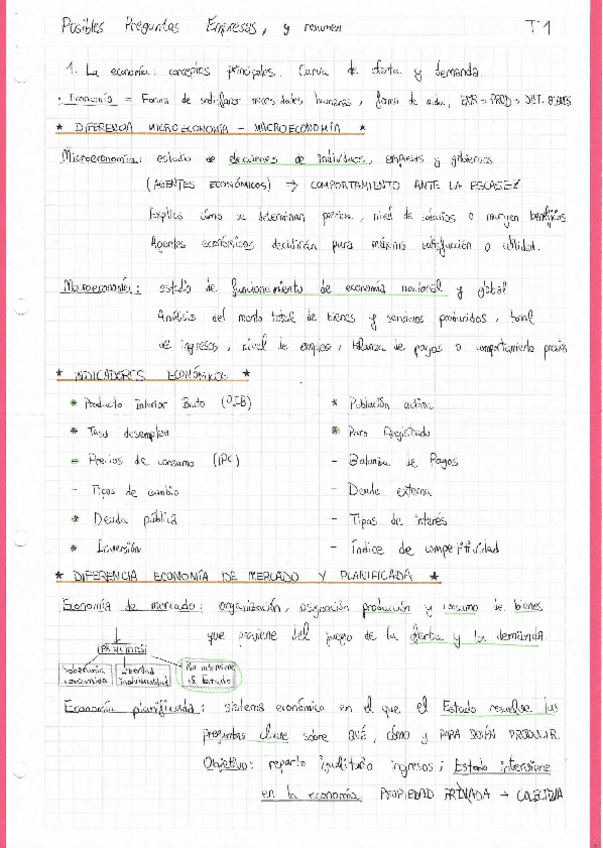 Posibles Preguntas Empresas, y resumen T1
1. La economía: conceptos principales. Curva de oferta y demanda.
· Economía = Forma de satisfacer necesidades humanas, forma de vida,
* DIFERENCIA MICROECONOMÍA - MACROECONOMÍA *
Microeconomía: estudio de decisiones de individuos, empresas y gobiernos
(AGENTES ECONÓMICOS) → COMPORTAMIENTO ANTE LA ESCASEZ
Explica cómo se determinan precios, nivel de salarios o margen beneficios
Agentes económicos decidirán para máxima satisfacción o utilidad.
Macroeconomía: estudio de funcionamiento de economía nacional y global
Análisis del monto total de bienes y servicios producidos, total
de ingresos, nivel de empleo, balanza de pagos o comportamiento precios
* INDICADORES ECONÓMICOS *
* Producto Interior Bruto (PIB) * Población activa
* Tasa desempleo * Paro Registrado
- Precios de consumo (IPC) - Balanza de Pagos
- Tipos de cambio - Deuda externa
* Deuda pública - Tipos de interés
* Inversión - Índice de competitividad
* DIFERENCIA ECONOMÍA DE MERCADO Y PLANIFICADA *
Economía de mercado: organización, asignación producción y consumo de bienes
que proviene del juego de la oferta y la demanda
PRINCIPIOS
Soberanía consumidor Libertad individualidad No interviene el Estado
Economía planificada: sistema económico en el que el Estado resuelve las
preguntas clave sobre QUÉ, CÓMO y PARA QUIÉN PRODUCIR.
Objetivo: reparto igualitario ingresos; Estado interviene
en la economía PROPIEDAD PRIVADA → COLECTIVA